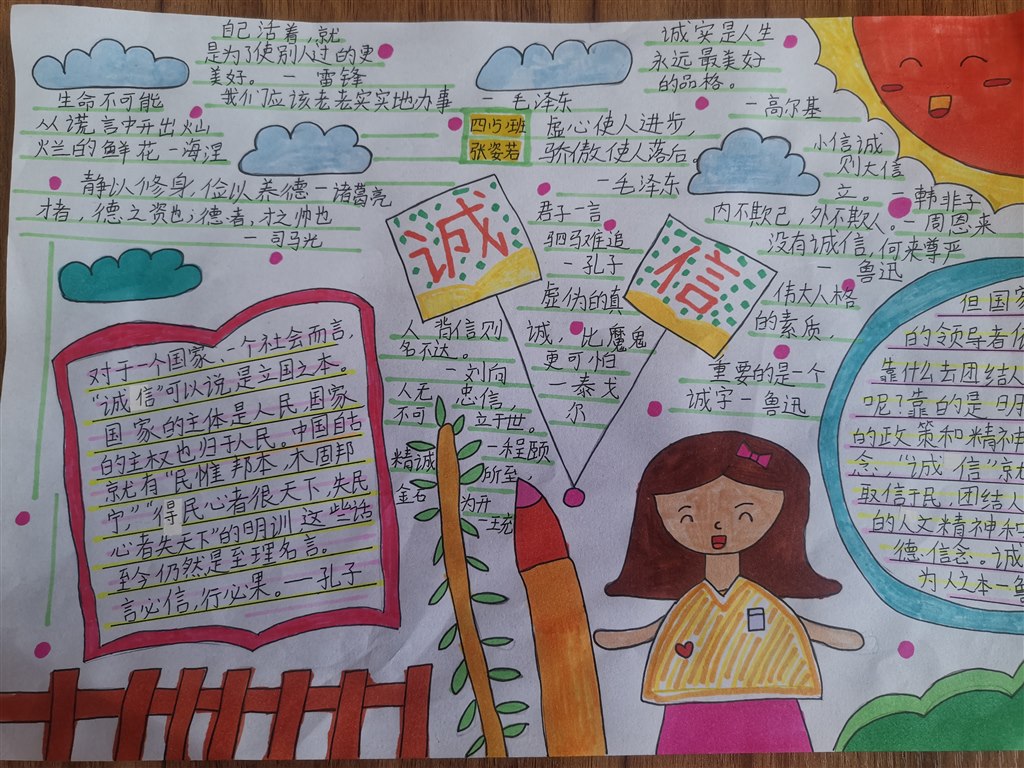 自己活着,就
是为了使别人过的更
美好。 — 雷锋
我们应该老老实实地办事 — 毛泽东
诚实是人生
永远最美好
的品格。
— 高尔基
生命不可能
从谎言中开出灿
烂的鲜花 — 海涅
四(5)班
张姿若
虚心使人进步,
骄傲使人落后。
— 毛泽东
小信诚
则大信
立。 — 韩非子
静以修身,俭以养德 — 诸葛亮
才者,德之资也;德者,才之帅也
— 司马光
内不欺己,外不欺人。 — 周恩来
没有诚信,何来尊严
— 鲁迅
诚
信
君子一言
驷马难追
— 孔子
虚伪的真
诚,比魔鬼
更可怕
— 泰戈
尔
伟大人格
的素质,
重要的是一个
诚字 — 鲁迅
人背信则
名不达。
— 刘向
人无忠信,
不可立于世。
— 程颐
精诚所至
金石为开
— 王充
对于一个国家、一个社会而言,
“诚信”可以说是立国之本。
国家的主体是人民,国家
的主权也归于人民。中国自古
就有“民惟邦本,木固邦
宁,”“得民心者很天下,失民
心者失天下”的明训,这些话
至今仍然是至理名言。
言必信,行必果。 — 孔子
但国家
的领导者
靠什么去团结人
呢?靠的是明
的政策和精神
念,“诚信”就
取信于民,团结人
的人文精神和
德信念。诚
为人之本 — 鲁